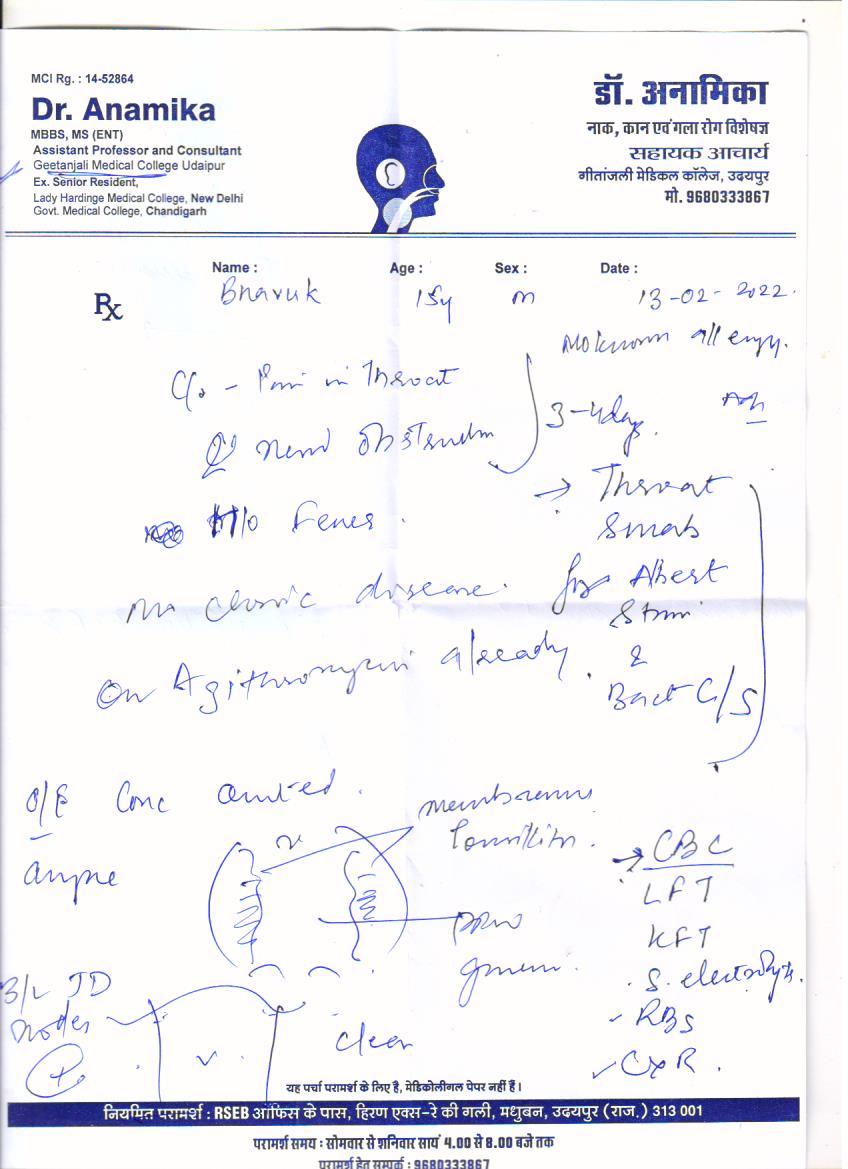 MCI Rg. : 14-52864
Dr. Anamika
MBBS, MS (ENT)
Assistant Professor and Consultant
Geetanjali Medical College Udaipur
Ex. Senior Resident,
Lady Hardinge Medical College, New Delhi
Govt. Medical College, Chandigarh
डॉ. अनामिका
नाक, कान एवं गला रोग विशेषज्ञ
सहायक आचार्य
गीतांजली मेडिकल कॉलेज, उदयपुर
मो. 9680333867
Name : Age : Sex : Date :
Rx Bhavuk 15y m 13-02-2022.
No known allergy.
C/o - Pain in Throat
3-4days.
→ Throat
Swab
H/o Fever.
no chronic disease. for Albert
Stain
&
Bact C/S
On Azithromycin already.
O/E Conc
membranous
Tonsillitis.
→ CBC
LFT
KFT
S. electrolytes.
RBS
CxR.
B/L JD
nodes
clear
यह पर्चा परामर्श के लिए है, मेडिकोलीगल पेपर नहीं हैं।
नियमित परामर्श : RSEB ऑफिस के पास, हिरण एक्स-रे की गली, मधुबन, उदयपुर (राज.) 313 001
परामर्श समय : सोमवार से शनिवार सायं 4.00 से 8.00 बजे तक
परामर्श हेतु सम्पर्क : 9680333867